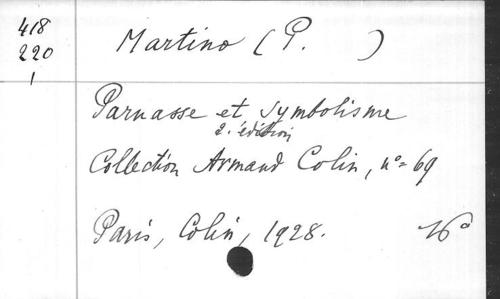 418
220
1
Martino (P. )
Parnasse et Symbolisme
2. édition
Collection Armand Colin, nº 69
Paris, Colin, 1928.
16º